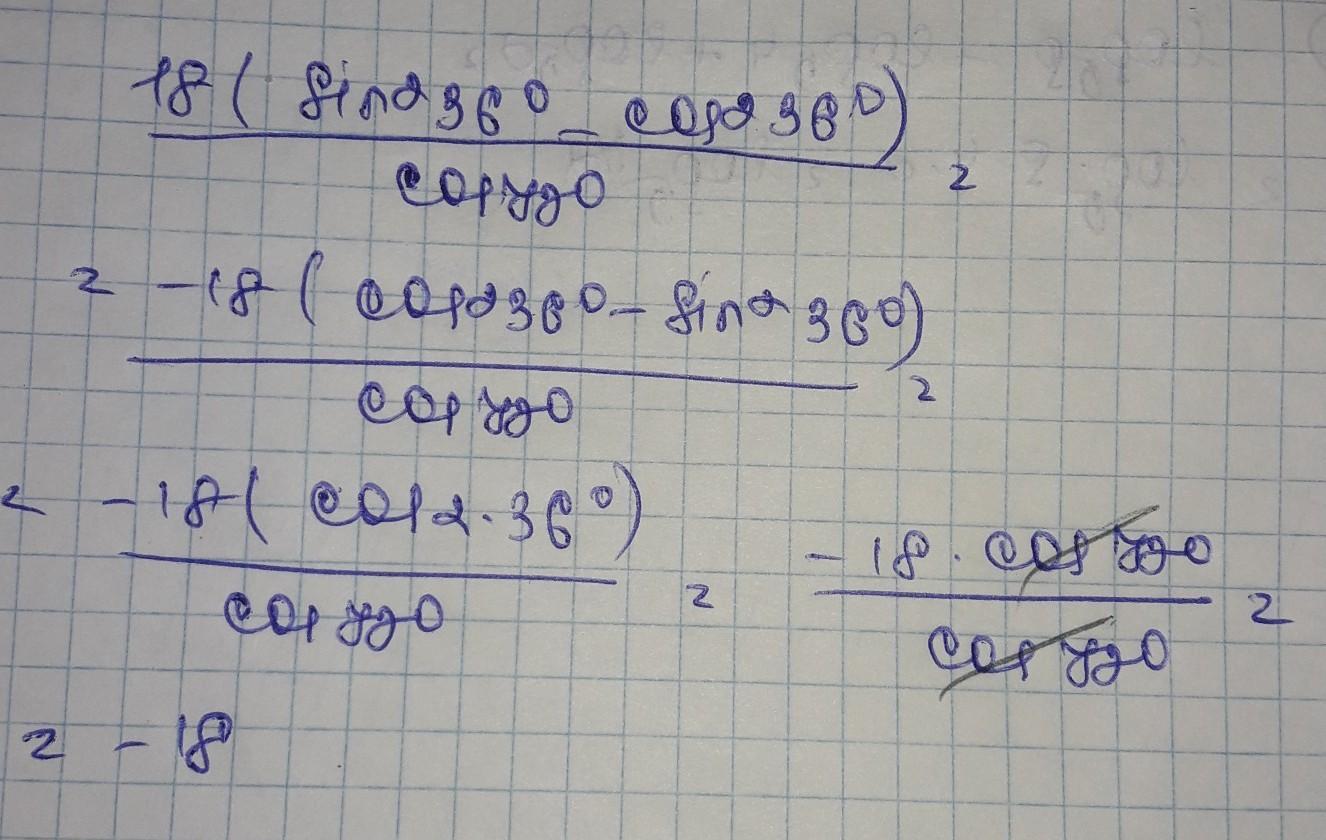 18 ( sin² 36° - cos² 36° )
cos 72°
=
= -18 ( cos² 36° - sin² 36° )
cos 72°
=
= -18 ( cos 2 · 36° )
cos 72°
= -18 · cos 72°
cos 72°
=
= -18